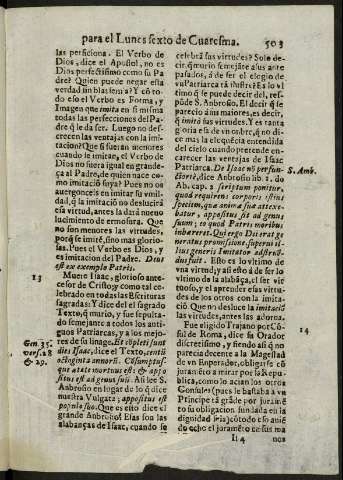 para el Lunes sexto de Cuaresma. 503
las perficiona. El Verbo de
Dios, dice el Apostol, no es
Dios perfectissimo como su Pa
dre? Quien puede negar esta
verdad sin blasfemia? Y cō to
do esso el Verbo es Forma, y
Imagen que imita en si misma
todas las perfecciones del Pa-
dre q̄ le da ser. Luego no des-
crecen las ventajas con la imi-
tacion? Que si fueran menores
cuando le imita, el Verbo de
Dios no fuera igual en grande-
ça al Padre, de quien nace co-
mo imitaciō suya? Pues no os
auergonceis en imitar su santi-
dad, q̄ la imitacion no deslucirà
essa virtud, antes la darà nueuo
lucimiento de ermosura. Que
no son menores las virtudes,
porq̄ se imitē, sino mas glorio-
sas. Pues el Verbo es Dios, y
es imitacion del Padre. Deus
est ex exemplo Patris.
13
Muere Isaac, glorioso ante-
cesor de Cristo; y como tal ce-
lebrado en todas las Escrituras
sagradas: Y dice del el sagrado
Texto, q̄ murio, y fue sepulta-
do semejante a todos los anti-
guos Patriarcas, y a los mejo-
res de su linage. Et cōpleti sunt
dies Isaac, dice el Texto, centū
octoginta annorū. Cōsumptus-
que ætate mortuus est: & appo
situs est ad genus suū. Assi lee S.
Ambrosio en lugar de lo q̄ dice
nuestra Vulgata; appositus est
populo suo. Que es esto dice el
grande Ambrosio? Essas son las
alabanças de Isaac, cuando se
Gen. 35.
vers. 28
& 29.
celebrā sus virtudes? Solo de-
cir, q̄ murio semejāte a sus ante
pasados, à de ser el elogio de
vn Patriarca tā ilustre? Es a lo vl
timo q̄ se puede decir del, res-
pōde S. Ambrosio. El decir q̄ se
parecio à nis maiores, es decir,
q̄ imitò sus virtudes. Y es tanta
gloria esa de vn onbre, q̄ no di-
ce mas la eloquēcia entendida
del cielo cuando pretende en-
carecer las ventajas de Isaac
Patriarca. De Isaac nō perfun-
ctoriè, dice Ambrosio lib. 1. do
Ab. cap. 2 scriptum ponitur,
quod requirens corporis istius
speciem, quæ animæ suæ attexe-
batur, appositus sit ad genus
suum; eo quod Patris moribus
inhæreret. Qui ergo Dei erat ge
neratus promissione, superni il-
lius generis Imitator adscribē-
dus fuit. Esto es lo vltimo de
vna virtud; y asi esto à de ser lo
vltimo de la alabāça, el ser vir
tuoso, y el aprender esas virtu-
des de los otros con la imitaciō
Que no desluce la imitaciō las
virtudes, antes las adorna.
S. Amb.
Fue eligido Trajano por Cō-
sul de Roma, dice su Orador
discretissimo; y siendo assi q̄ no
parecia decente a la Magestad
de vn Enperador, obligarse cō
juramēto a mirar por la Repu-
blica, como lo acian los otros
Consules (pues le bastaba a vn
Principe tā grāde por juramē
to su obligacion fundada en la
14
Ii 4 nos